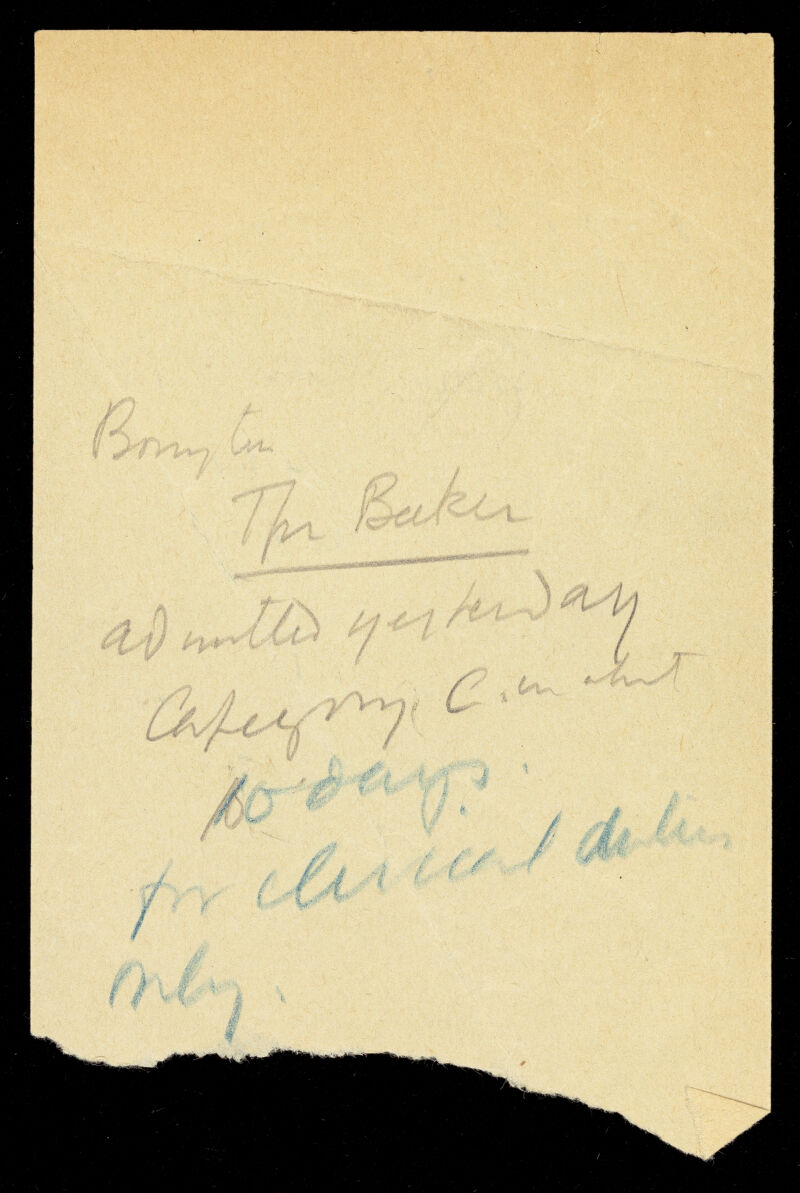 Tpr Baker
admitted yesterday
Category C. in about
10 days.
for clerical duties
only.